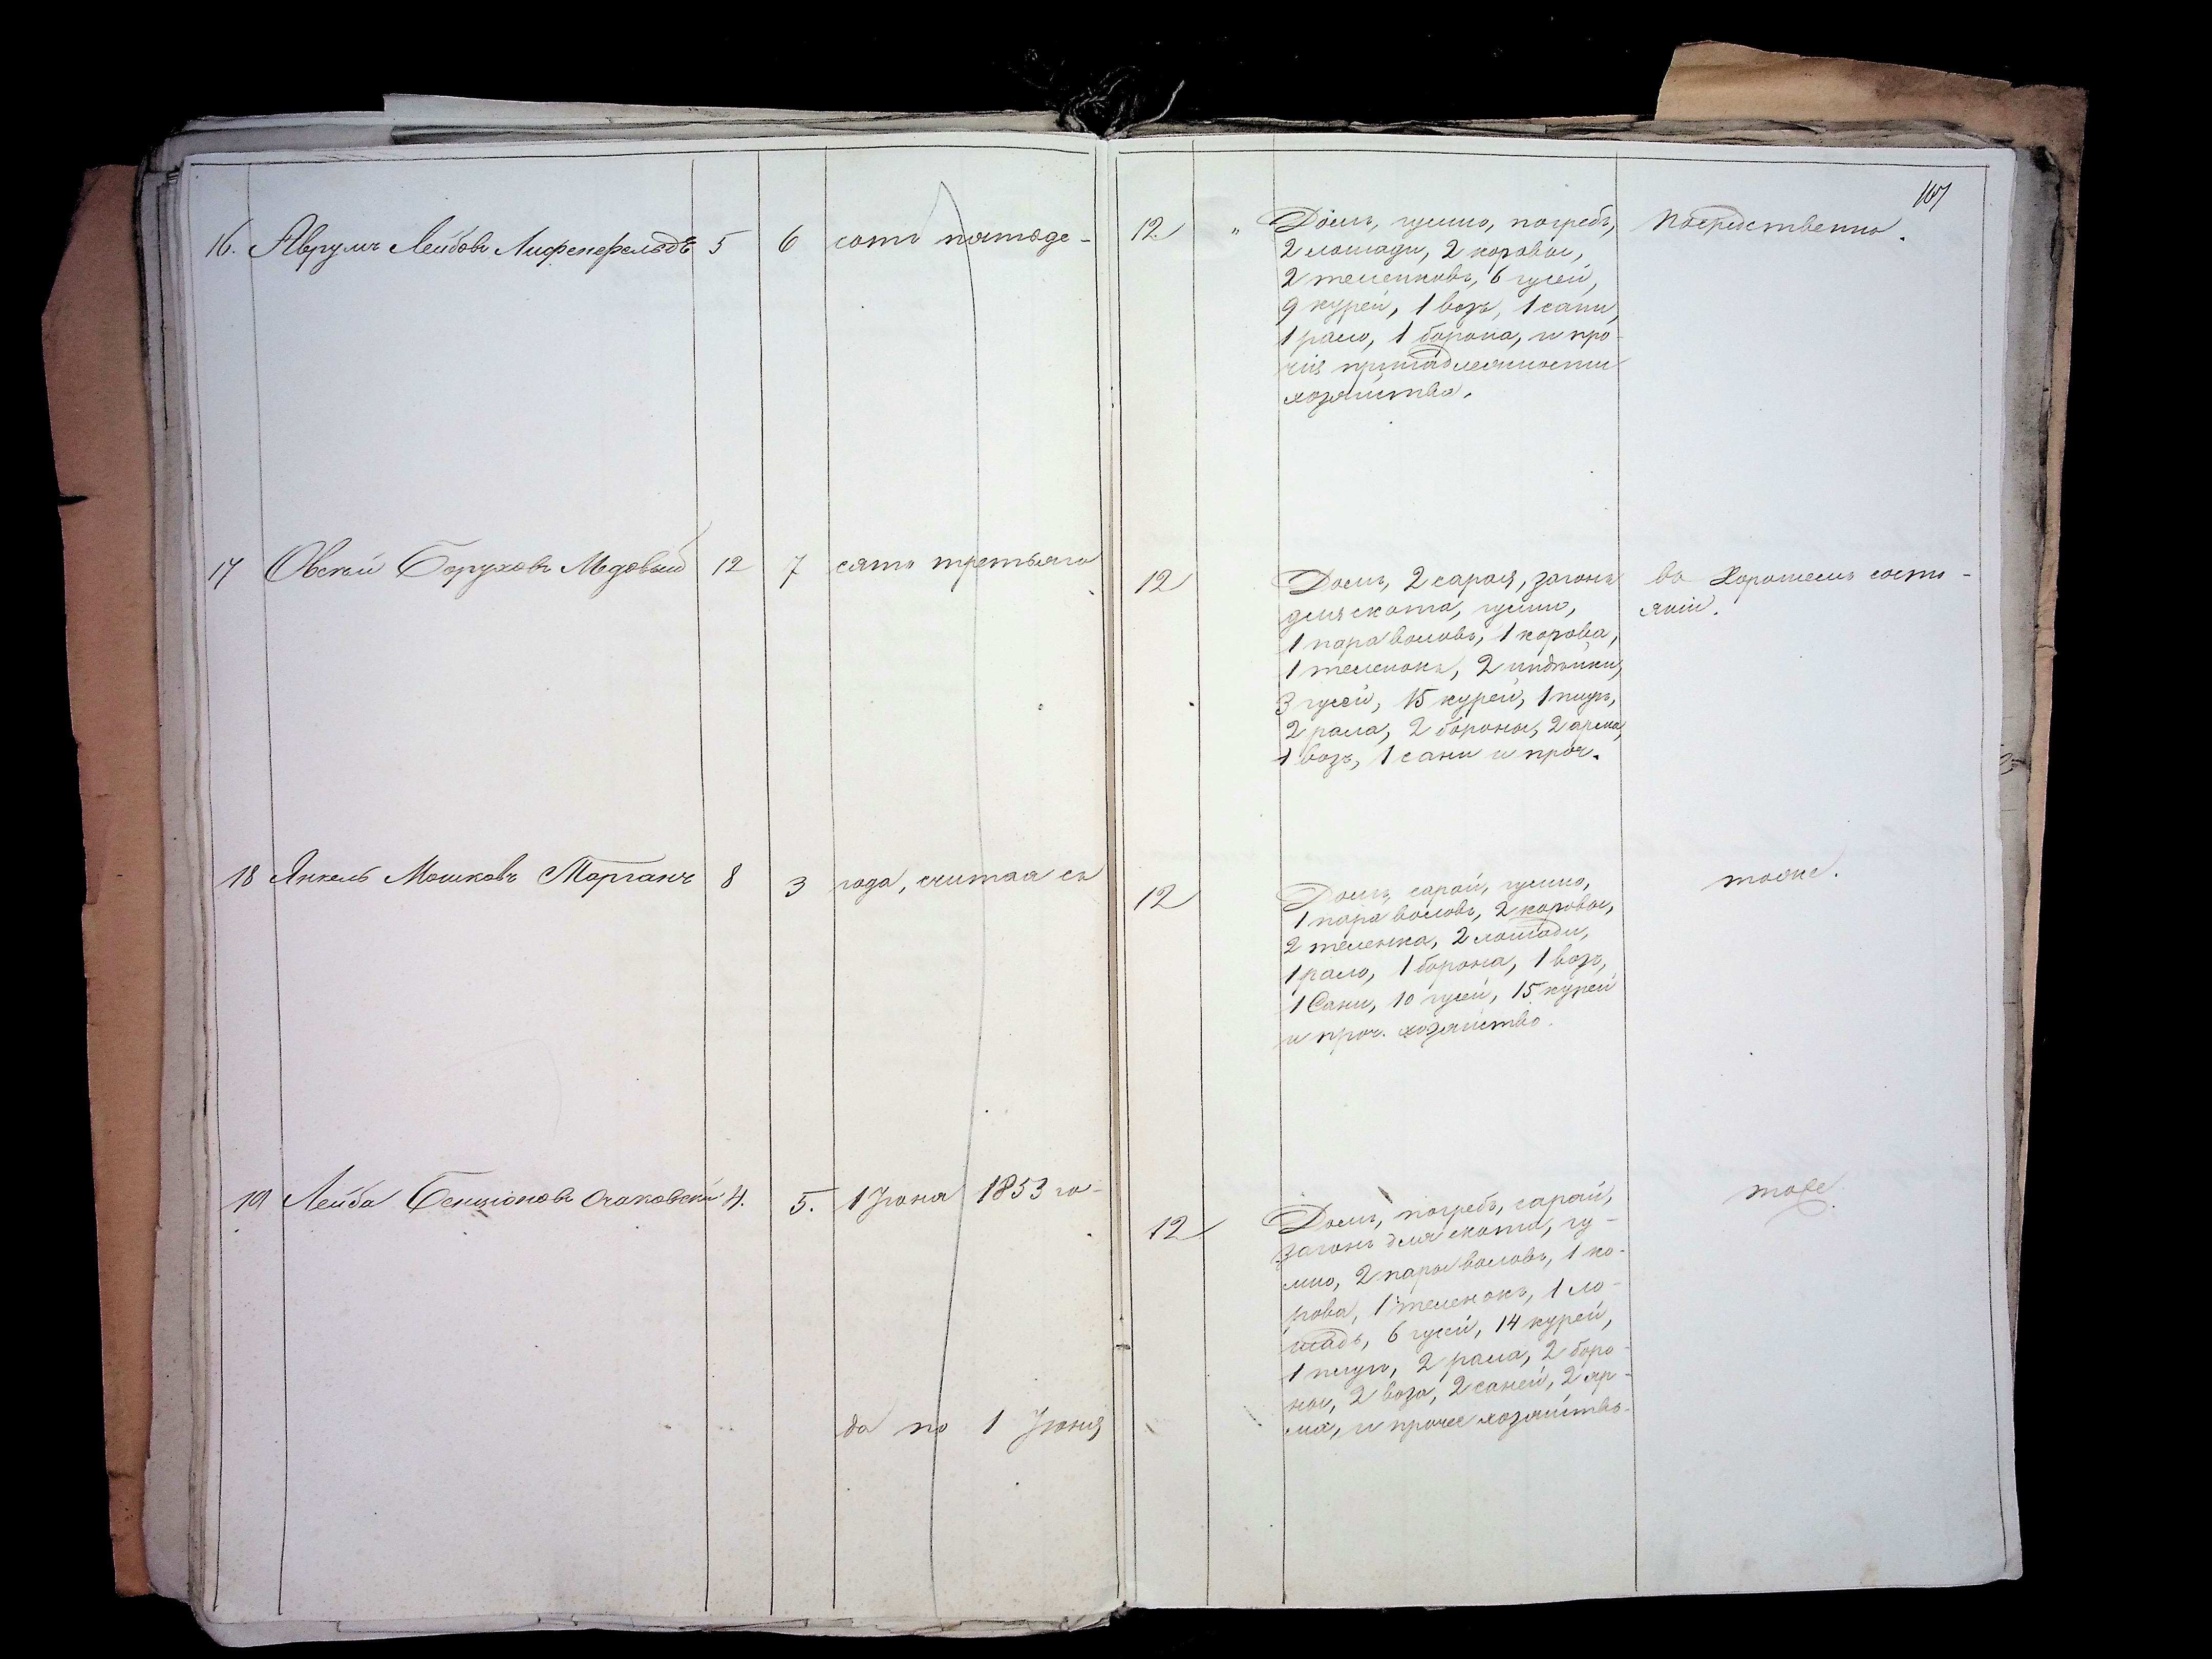 107
16. Аврумъ Лейбовъ Лифенфельдъ 5 6 сотъ пятьде-
12 " Домъ, гумно, погребъ,
2 лошади, 2 коровы,
2 теленковъ, 6 гусей,
9 курей, 1 возъ, 1 сани,
1 рало, 1 борона, и про-
чія принадлежности
хозяйства.
Посредственно.
17 Овсей Боруховъ Медовый 12 7 сятъ третьяго
12 Домъ, 2 сарая, загонъ
для скота, гумно,
1 пара воловъ, 1 корова,
1 теленокъ, 2 индѣйки,
3 гусей, 15 курей, 1 плугъ,
2 рала, 2 бороны, 2 ярма,
1 возъ, 1 сани и проч.
во Хорошемъ состо-
яніи.
18 Янкель Мошковъ Морганъ 8 3 года, считая съ
12 Домъ, сарай, гумно,
1 пара воловъ, 2 коровы,
2 теленка, 2 лошади,
1 рало, 1 борона, 1 возъ,
1 Сани, 10 гусей, 15 курей
и проч. хозяйство.
тоже.
19 Лейба Бенціоновъ Очаковскій 4. 5. 1 Іюня 1853 го-
да по 1 Іюня
12 Домъ, погребъ, сарай,
загонъ для скота, гу-
мно, 2 пары воловъ, 1 ко-
рова, 1 теленокъ, 1 ло-
шадь, 6 гусей, 14 курей,
1 плугъ, 2 рала, 2 боро-
ны, 2 воза, 2 саней, 2 яр-
ма, и прочее хозяйство.
тоже.